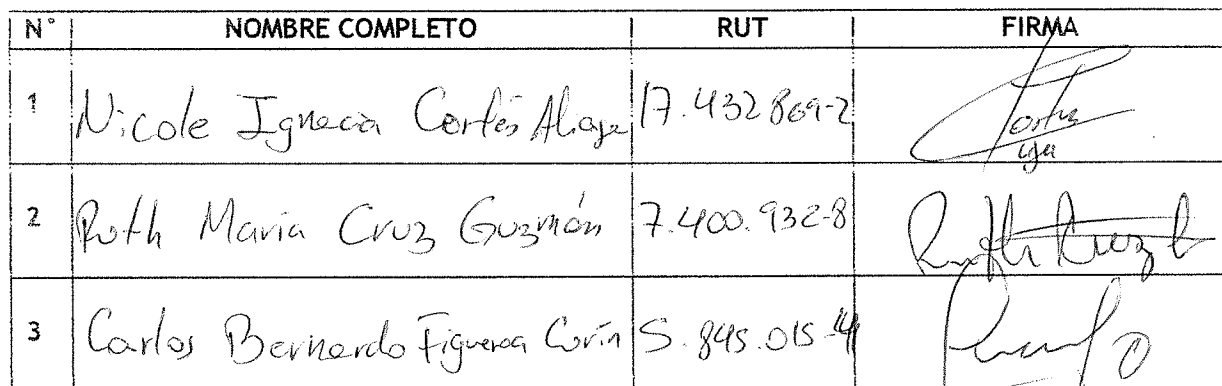 N° NOMBRE COMPLETO RUT FIRMA
1 Nicole Ignacia Cortés Aliaga 17.432869-2 Cortes
2 Ruth María Cruz Guzmán 7.400.932-8 Ruth Cruz G
3 Carlos Bernardo Figueroa 5.845.015-4